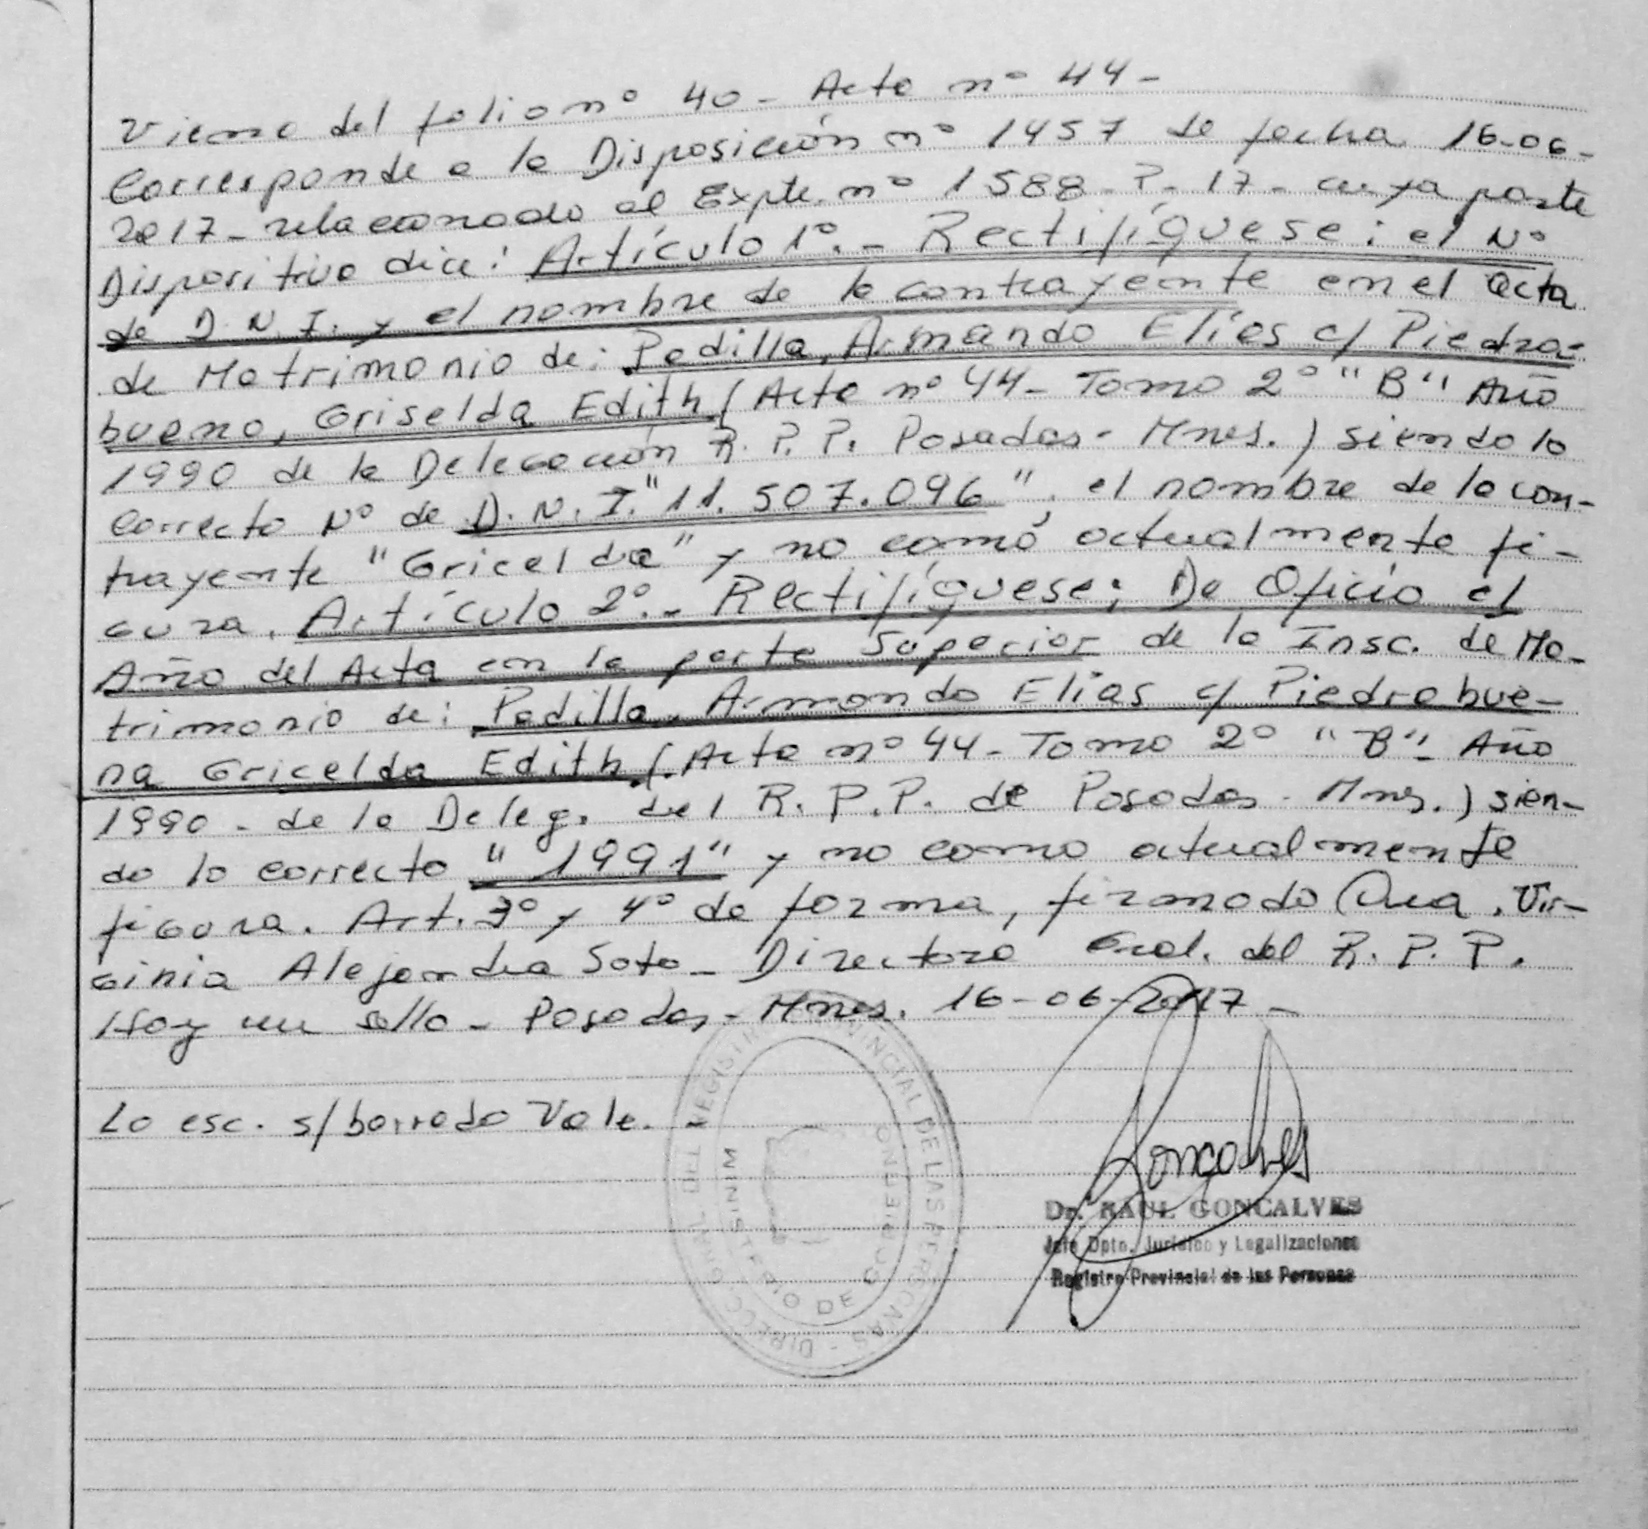 Viene del folio nº 40 - Acta nº 44 -
Corresponde a la Disposición nº 1457 de fecha 16-06-
2017 - relacionado al Expte. nº 1588 - P - 17 - cuya parte
Dispositiva dice: Artículo 1º. - Rectifíquese: el Nº
de D.N.I. y el nombre de la contrayente en el acta
de Matrimonio de: Padilla, Armando Elías c/ Piedra-
buena, Griselda Edith (Acta nº 44 - Tomo 2º "B" Año
1990 de la Delegación R.P.P. Posadas - Mnes.) siendo lo
correcto Nº de D.N.I. "11.507.096", el nombre de la con-
trayente "Gricelda" y no como actualmente fi-
gura. Artículo 2º. - Rectifíquese; De Oficio el
Año del Acta en la parte Superior de la Insc. de Ma-
trimonio de: Padilla, Armando Elías c/ Piedrabue-
na Gricelda Edith (Acta nº 44 - Tomo 2º "B" - Año
1990 - de la Deleg. del R.P.P. de Posadas - Mnes.) sien-
do lo correcto "1991" y no como actualmente
figura. Art. 3º y 4º de forma, firmado Dra. Vir-
ginia Alejandra Soto - Directora Gral. del R.P.P.
Hay un sello - Posadas - Mnes. 16-06-2017 -
Lo esc. s/borrado Vale. -
DIRECC. GRAL. DEL REGISTRO PROVINCIAL DE LAS PERSONAS -
MINISTERIO DE GOBIERNO
Goncalves
Dr. RAUL GONCALVES
Jefe Dpto. Jurídico y Legalizaciones
Registro Provincial de las Personas